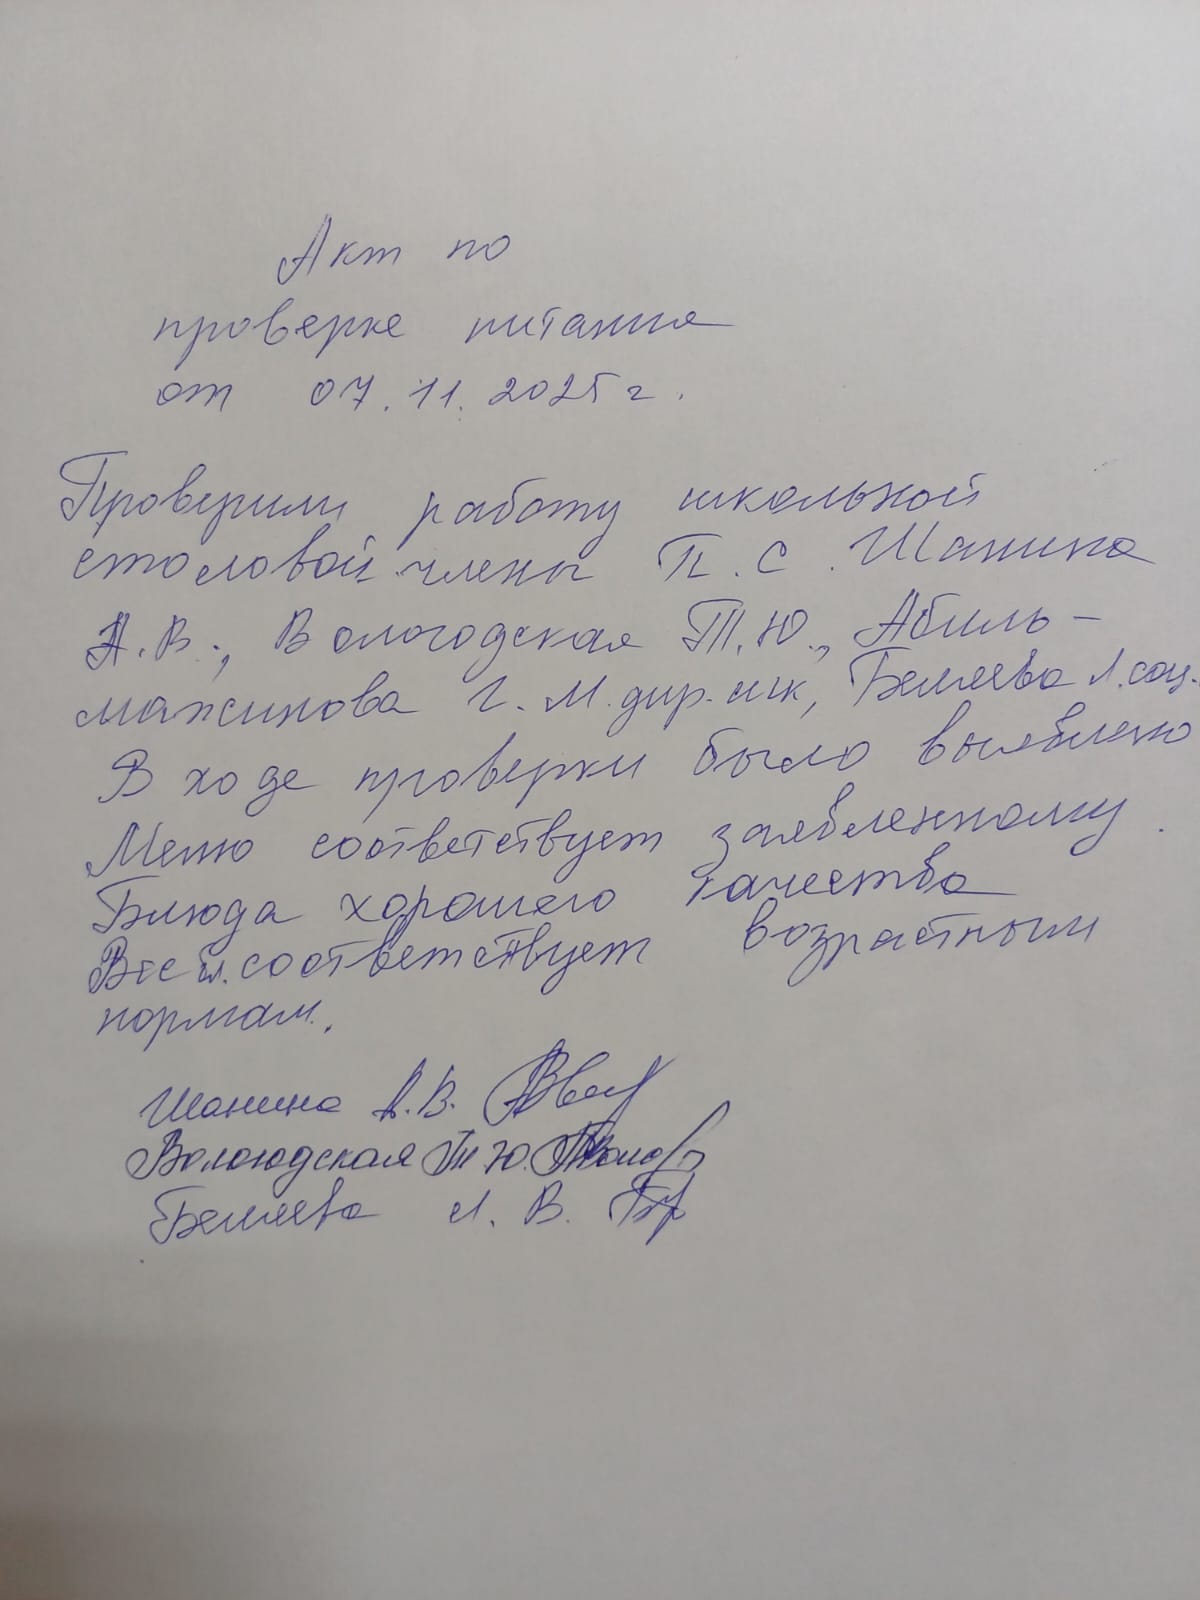 Акт по
проверке питания
от 07.11.2025 г.
Проверили работу школьной
столовой члены П.С. Шанина
А.В., Вологодская Т.Ю., Абиль-
мажинова Г.М. дир. шк, Беляева Л. соц.
В ходе проверки было выявлено
Меню соответствует заявленному.
Блюда хорошего качества
Вес бл. соответствует возрастным
нормам.
Шанина А.В.
Вологодская Т.Ю.
Беляева Л.В.